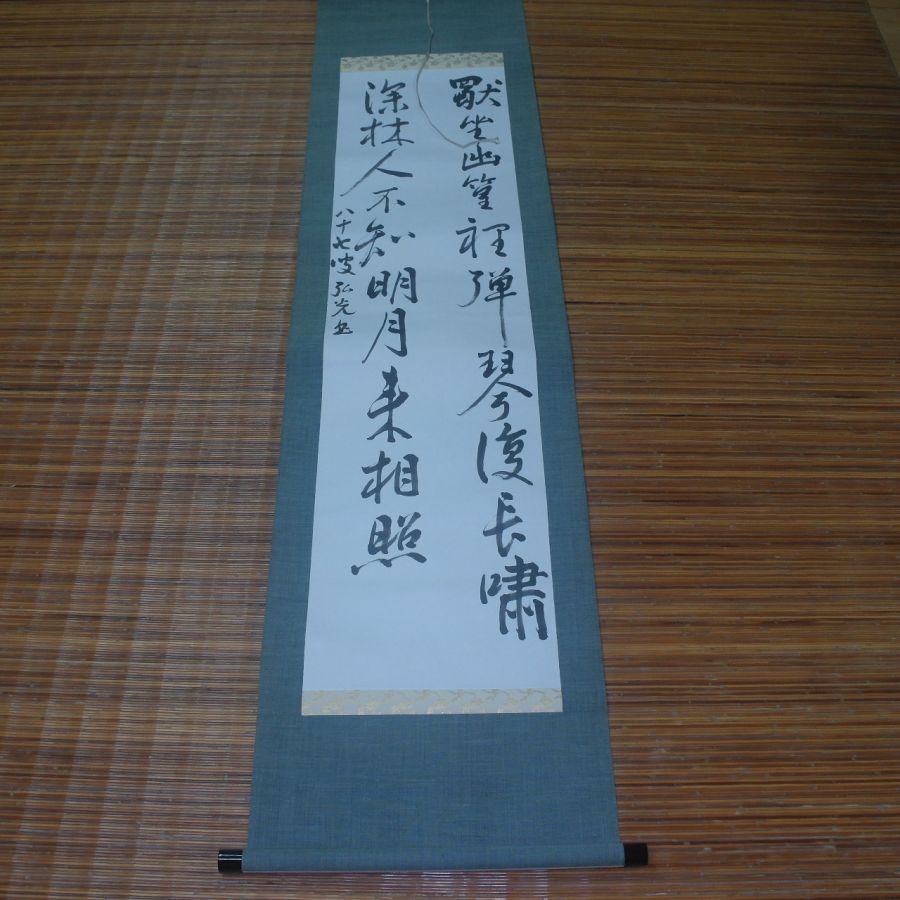 獨坐幽篁裡弾琴復長嘯
深林人不知明月来相照
八十七叟弘光書